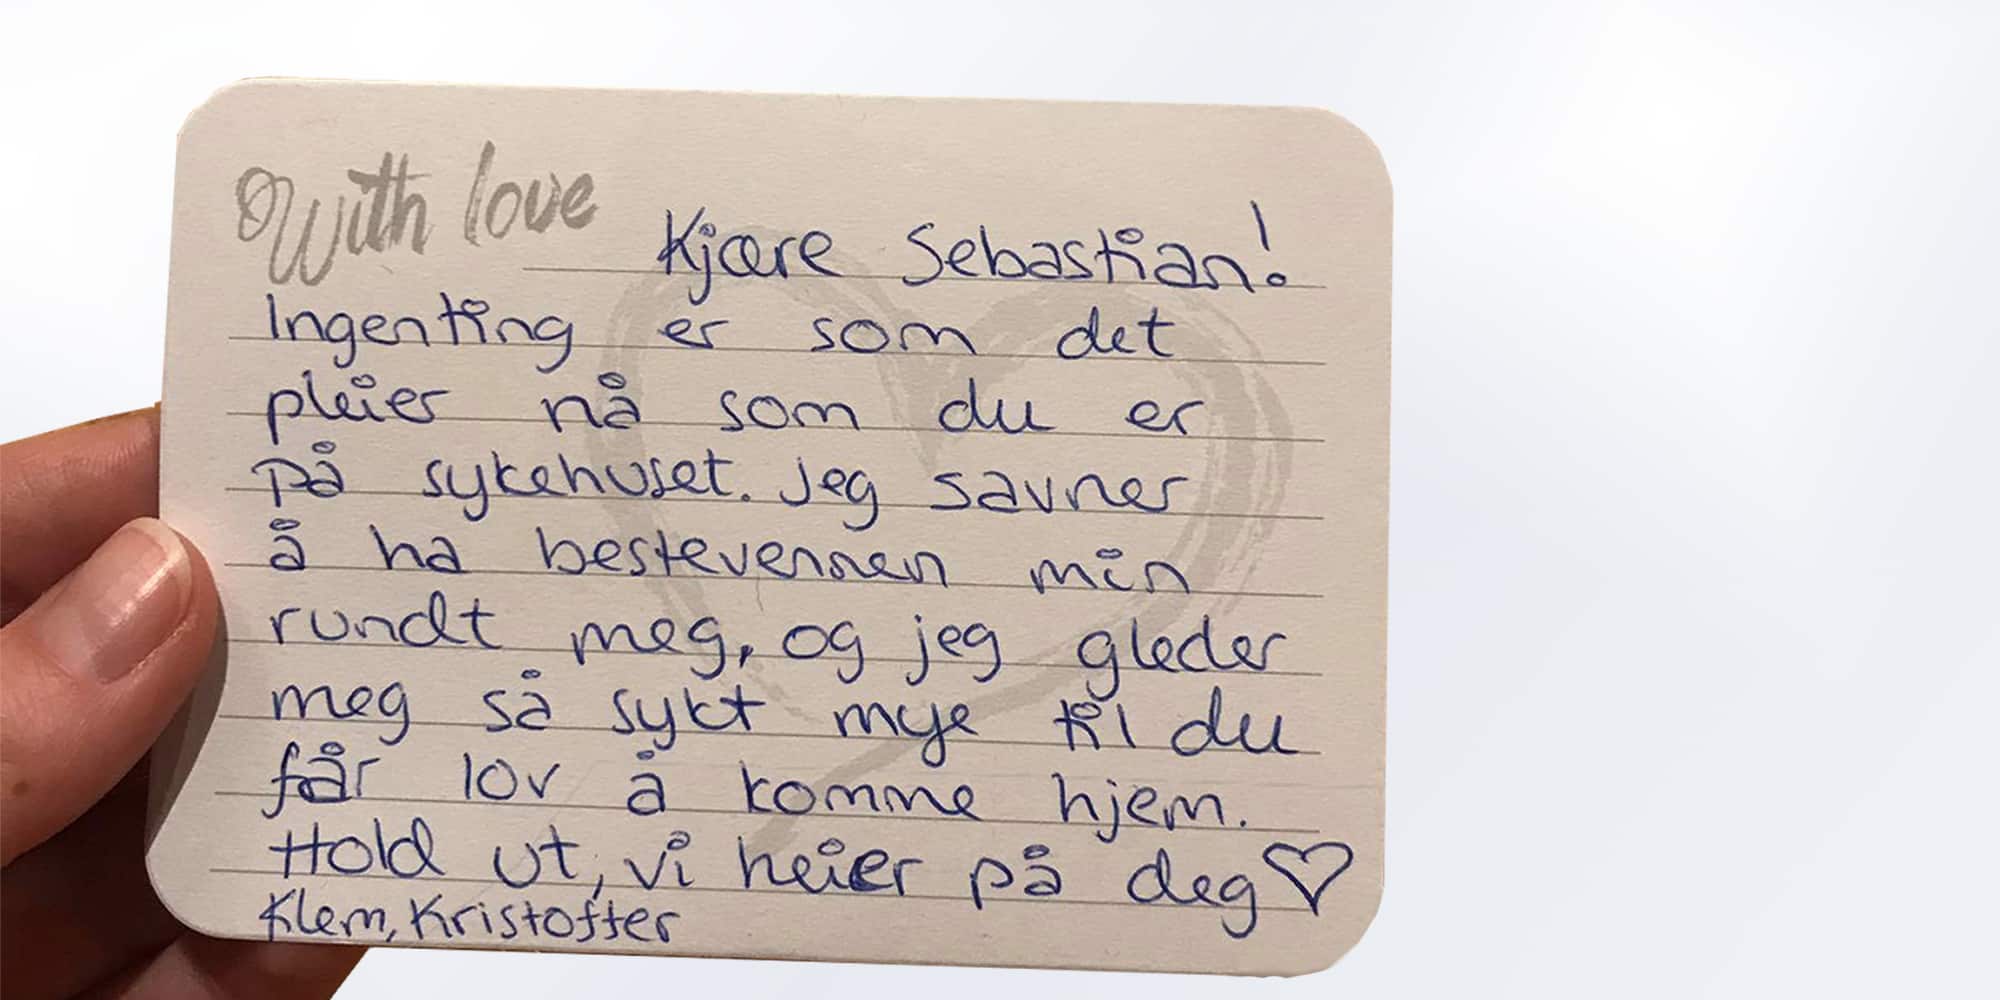 With love
Kjære Sebastian!
Ingenting er som det
pleier nå som du er
på sykehuset. Jeg savner
å ha bestevennen min
rundt meg, og jeg gleder
meg så sykt mye til du
får lov å komme hjem.
Hold ut, vi heier på deg♡
Klem, Kristoffer